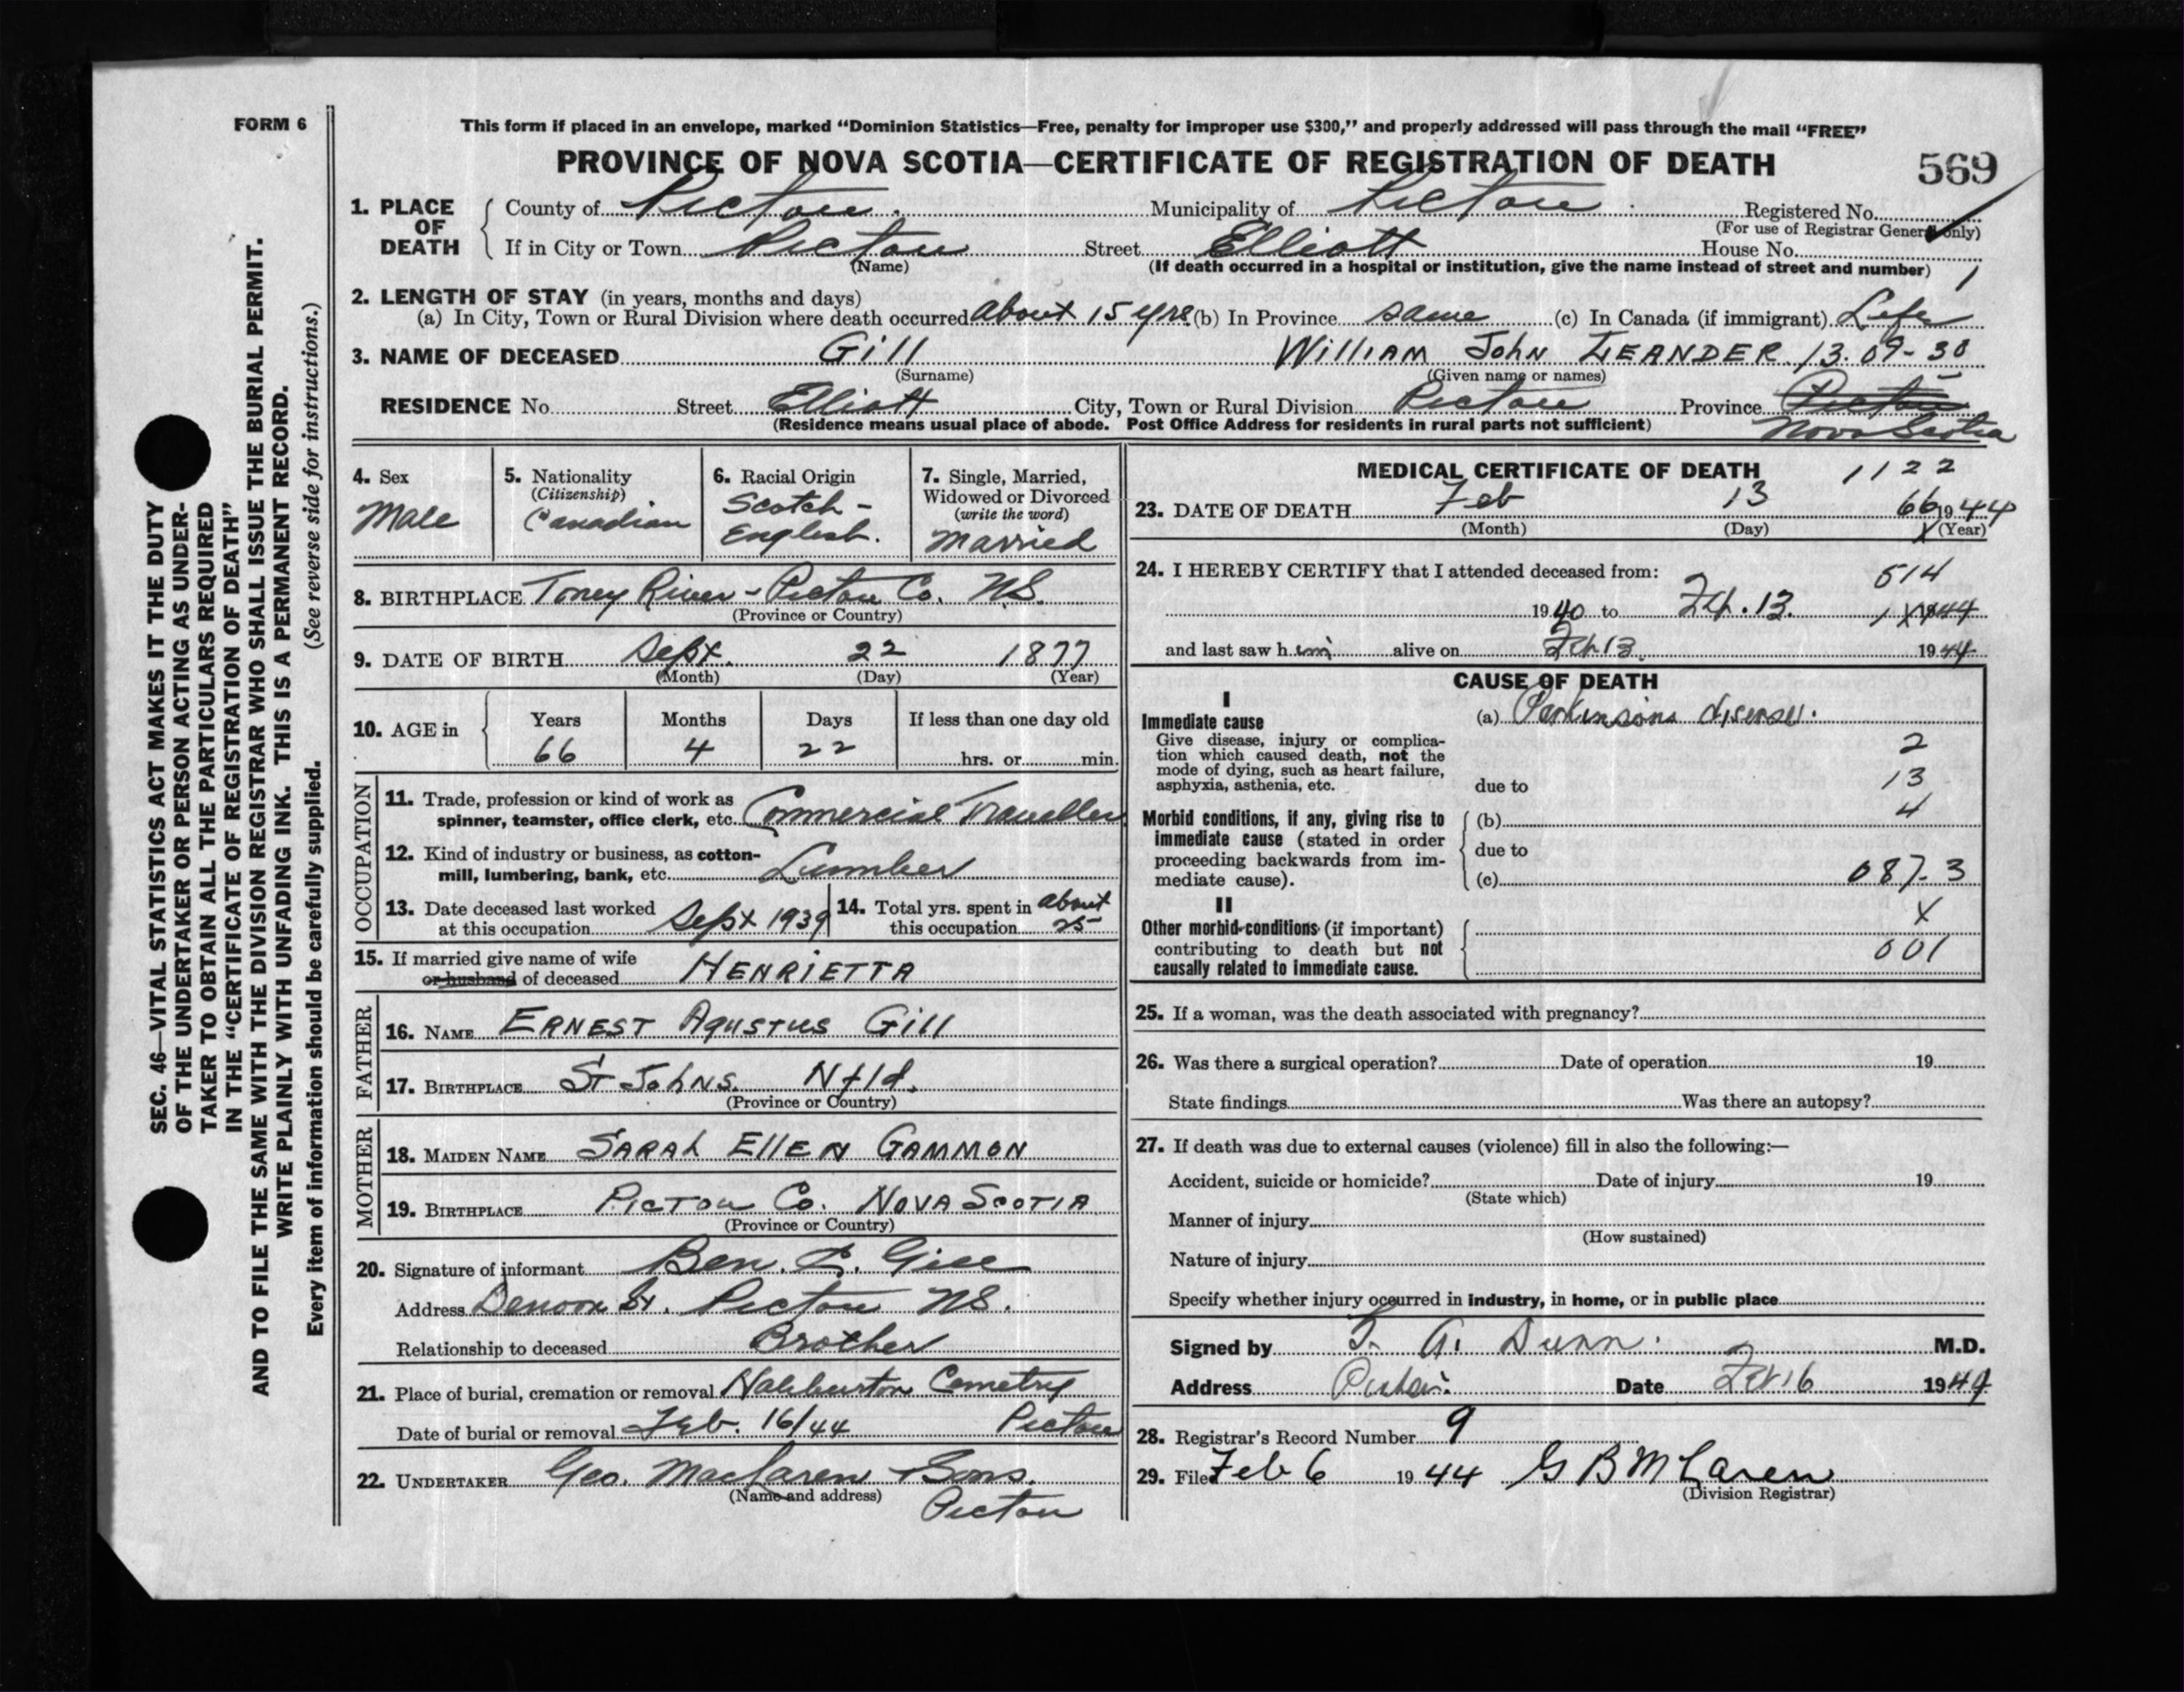 FORM 6
This form if placed in an envelope, marked “Dominion Statistics—Free, penalty for improper use $300,” and properly addressed will pass through the mail “FREE”
PROVINCE OF NOVA SCOTIA—CERTIFICATE OF REGISTRATION OF DEATH
569
1. PLACE OF DEATH
County of Pictou. Municipality of Pictou Registered No.
(For use of Registrar General only)
If in City or Town Pictou Street Elliott House No.
(Name)
(If death occurred in a hospital or institution, give the name instead of street and number) 1
2. LENGTH OF STAY (in years, months and days)
(a) In City, Town or Rural Division where death occurred about 15 yrs (b) In Province same (c) In Canada (if immigrant) Life
3. NAME OF DECEASED Gill WILLIAM JOHN LEANDER 13.09-30
(Surname) (Given name or names)
RESIDENCE No Street Elliott City, Town or Rural Division Pictou Province Pictou
Nova Scotia
(Residence means usual place of abode. Post Office Address for residents in rural parts not sufficient)
4. Sex
Male
5. Nationality
(Citizenship)
Canadian
6. Racial Origin
Scotch -
English.
7. Single, Married,
Widowed or Divorced
(write the word)
Married
8. BIRTHPLACE Toney River - Pictou Co. N.S.
(Province or Country)
9. DATE OF BIRTH Sept. 22 1877
(Month) (Day) (Year)
10. AGE in
Years Months Days If less than one day old
66 4 22 hrs. or min.
OCCUPATION
11. Trade, profession or kind of work as
spinner, teamster, office clerk, etc. Commercial Traveller
12. Kind of industry or business, as cotton-
mill, lumbering, bank, etc. Lumber
13. Date deceased last worked
at this occupation Sept 1939
14. Total yrs. spent in about
this occupation 25
15. If married give name of wife
or husband of deceased HENRIETTA
FATHER
16. NAME ERNEST AGUSTUS Gill
17. BIRTHPLACE ST JOHNS. Nfld.
(Province or Country)
MOTHER
18. MAIDEN NAME SARAH ELLEN GAMMON
19. BIRTHPLACE PICTOU Co. NOVA SCOTIA
(Province or Country)
20. Signature of informant Ben. Gill
Address Denoon St. Pictou N.S.
Relationship to deceased Brother
21. Place of burial, cremation or removal Haliburton Cemetry
Date of burial or removal Feb. 16/44 Pictou
22. UNDERTAKER Geo. MacLaren + Sons.
(Name and address) Pictou
MEDICAL CERTIFICATE OF DEATH 1122
23. DATE OF DEATH Feb 13 66 1944
(Month) (Day) (Year)
24. I HEREBY CERTIFY that I attended deceased from: 514
1940 to Feb. 13. 1944
and last saw him alive on Feb 13 1944
CAUSE OF DEATH
I
Immediate cause (a) Parkinsons disease.
Give disease, injury or complica-
tion which caused death, not the
mode of dying, such as heart failure,
asphyxia, asthenia, etc. due to
2
13
4
Morbid conditions, if any, giving rise to
immediate cause (stated in order
proceeding backwards from im-
mediate cause).
(b)
due to
(c) 087-3
II X
Other morbid conditions (if important)
contributing to death but not
causally related to immediate cause.
001
25. If a woman, was the death associated with pregnancy?
26. Was there a surgical operation? Date of operation 19
State findings Was there an autopsy?
27. If death was due to external causes (violence) fill in also the following:—
Accident, suicide or homicide? Date of injury 19
(State which)
Manner of injury
(How sustained)
Nature of injury
Specify whether injury occurred in industry, in home, or in public place
Signed by A. Dunn. M.D.
Address Pictou. Date Feb 16 1944
28. Registrar's Record Number 9
29. Filed Feb 6 1944 G B McLaren
(Division Registrar)
SEC. 46—VITAL STATISTICS ACT MAKES IT THE DUTY
OF THE UNDERTAKER OR PERSON ACTING AS UNDER-
TAKER TO OBTAIN ALL THE PARTICULARS REQUIRED
IN THE “CERTIFICATE OF REGISTRATION OF DEATH”
AND TO FILE THE SAME WITH THE DIVISION REGISTRAR WHO SHALL ISSUE THE BURIAL PERMIT.
WRITE PLAINLY WITH UNFADING INK. THIS IS A PERMANENT RECORD.
Every item of information should be carefully supplied. (See reverse side for instructions.)